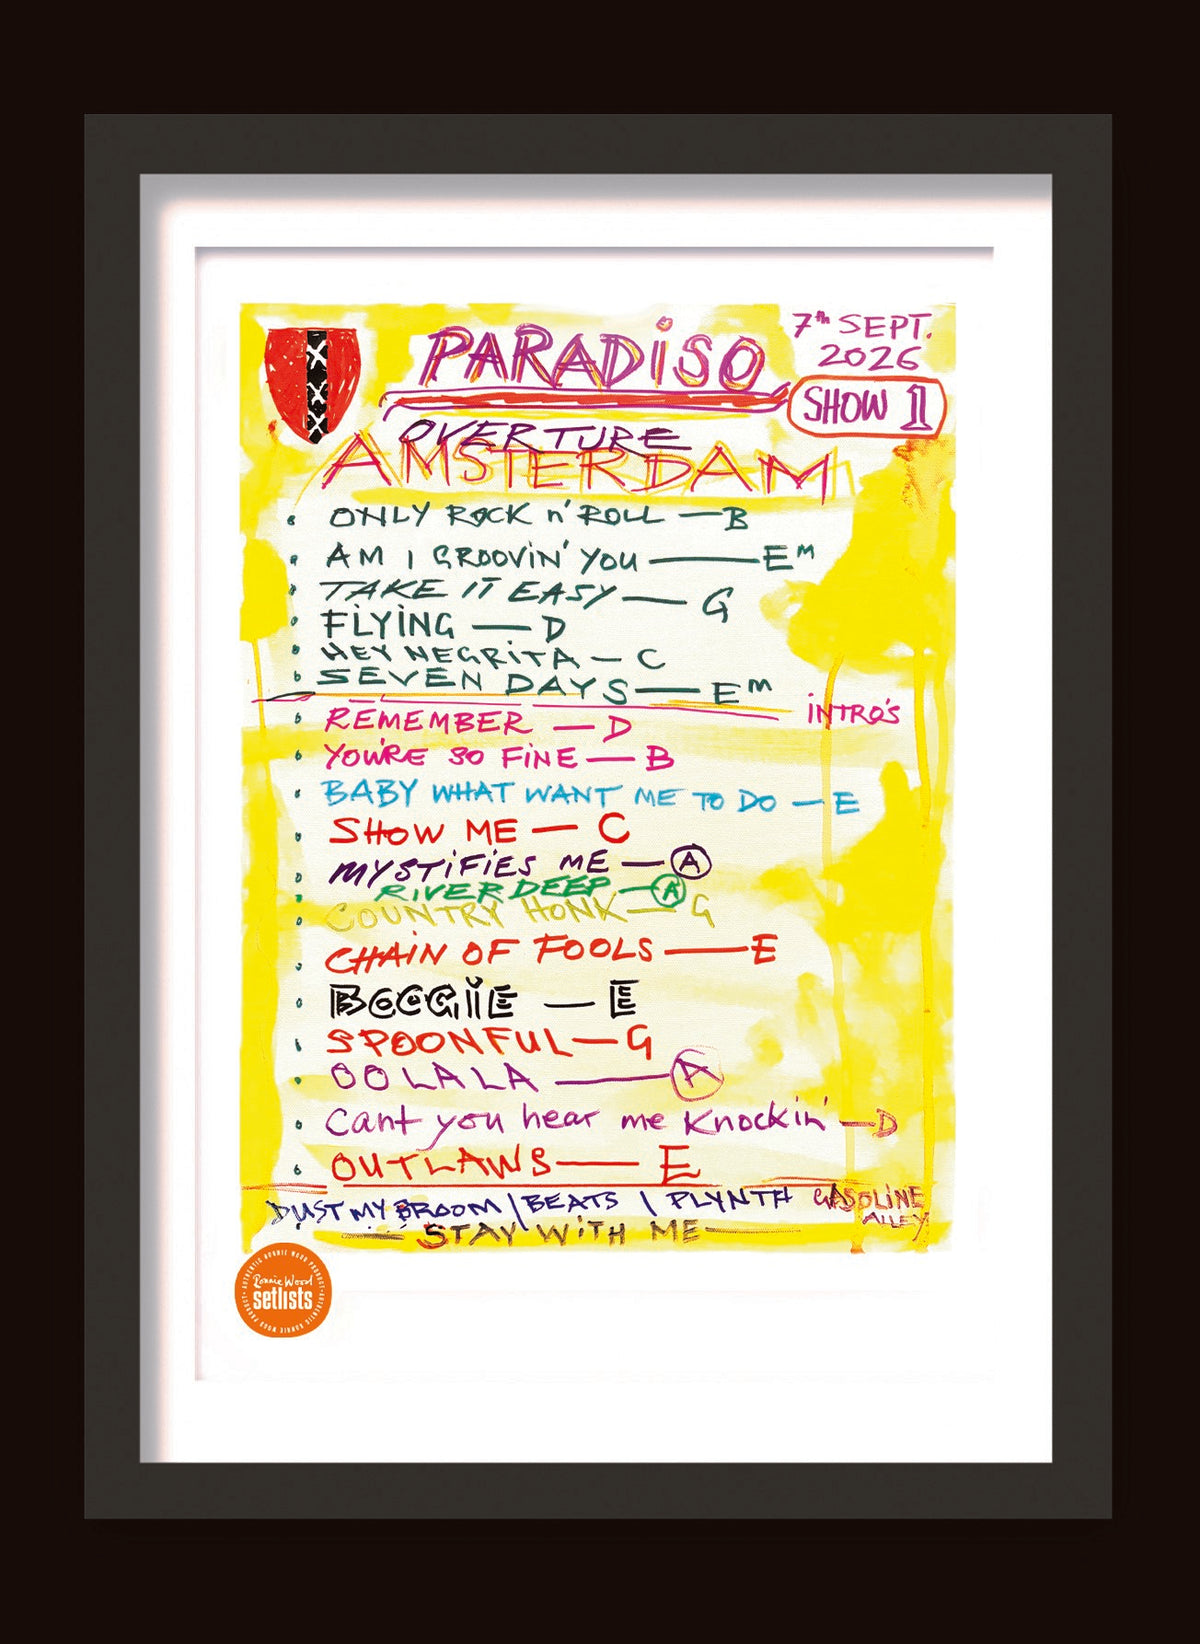 PARADiSO
7th SEPT.
2026
SHOW 1
OVERTURE
AMSTERDAM
ONLY ROCK n' ROLL — B
AM I GROOViN' YOU — Em
TAKE IT EASY — G
FLYiNG — D
HEY NEGRiTA — C
SEVEN DAYS — Em
iNTRO'S
REMEMBER — D
YOU'RE SO FiNE — B
BABY WHAT WANT ME TO DO — E
SHOW ME — C
MYSTiFiES ME — A
RiVER DEEP — A
COUNTRY HONK — G
CHAiN OF FOOLS — E
BOOGiE — E
SPOONFUL — G
OO LA LA — A
Cant you hear me Knockin' — D
OUTLAWS — E
DUST MY BROOM | BEATS | PLYNTH GASOLINE
ALLEY
— STAY WiTH ME —
AUTHENTIC RONNIE WOOD PRODUCT · AUTHENTIC RONNIE WOOD PRODUCT ·
Ronnie Wood
setlists